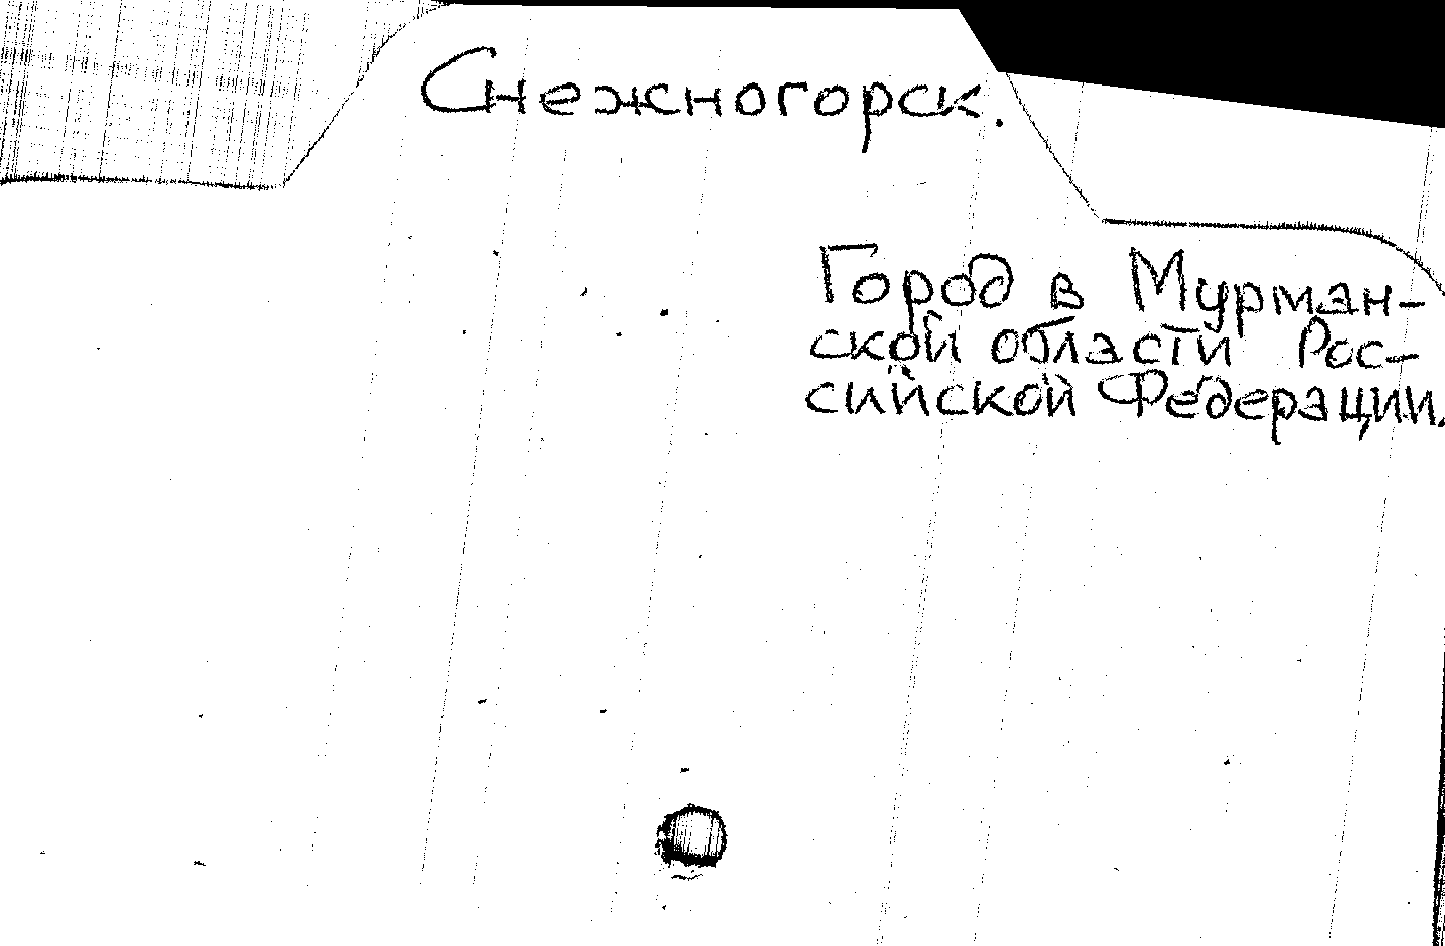 Снежногорск.
Город в Мурман-
ской области Рос-
сийской Федерации.